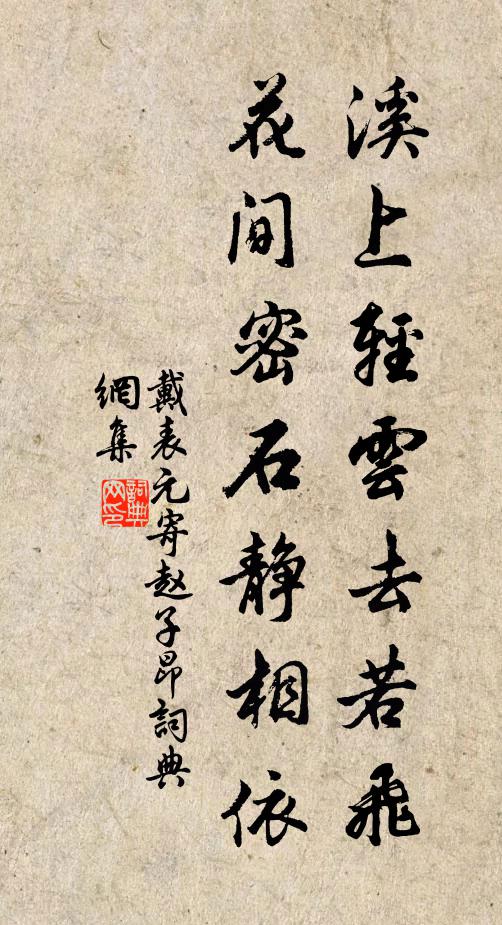 溪上輕雲去若飛
花間密石静相依
戴表元寄赵子昂詞典
網集
詞典网印